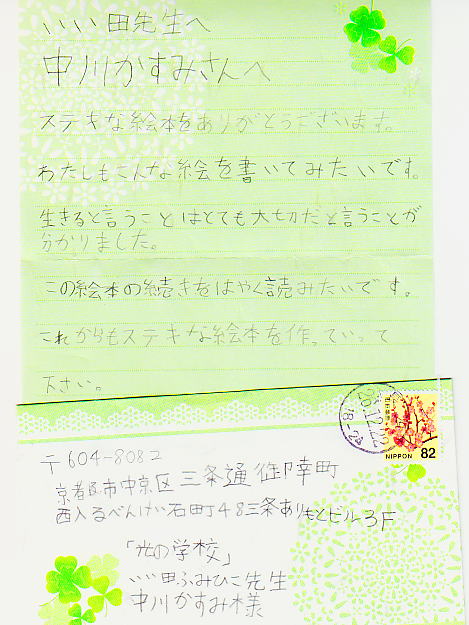 いいい田先生へ
中川かすみさんへ
ステキな絵本をありがとうございます。
わたしもこんな絵を書いてみたいです。
生きると言うことはとても大切だと言うことが
分かりました。
この絵本の続きをはやく読みたいです。
これからもステキな絵本を作っていって
下さい。
NIPPON 82
〒604-8082
京都市中京区三条通御幸町
西入るべんけい石町48三条ありもとビル3F
「光の学校」
いいい田ふみひこ先生
中川かすみ様